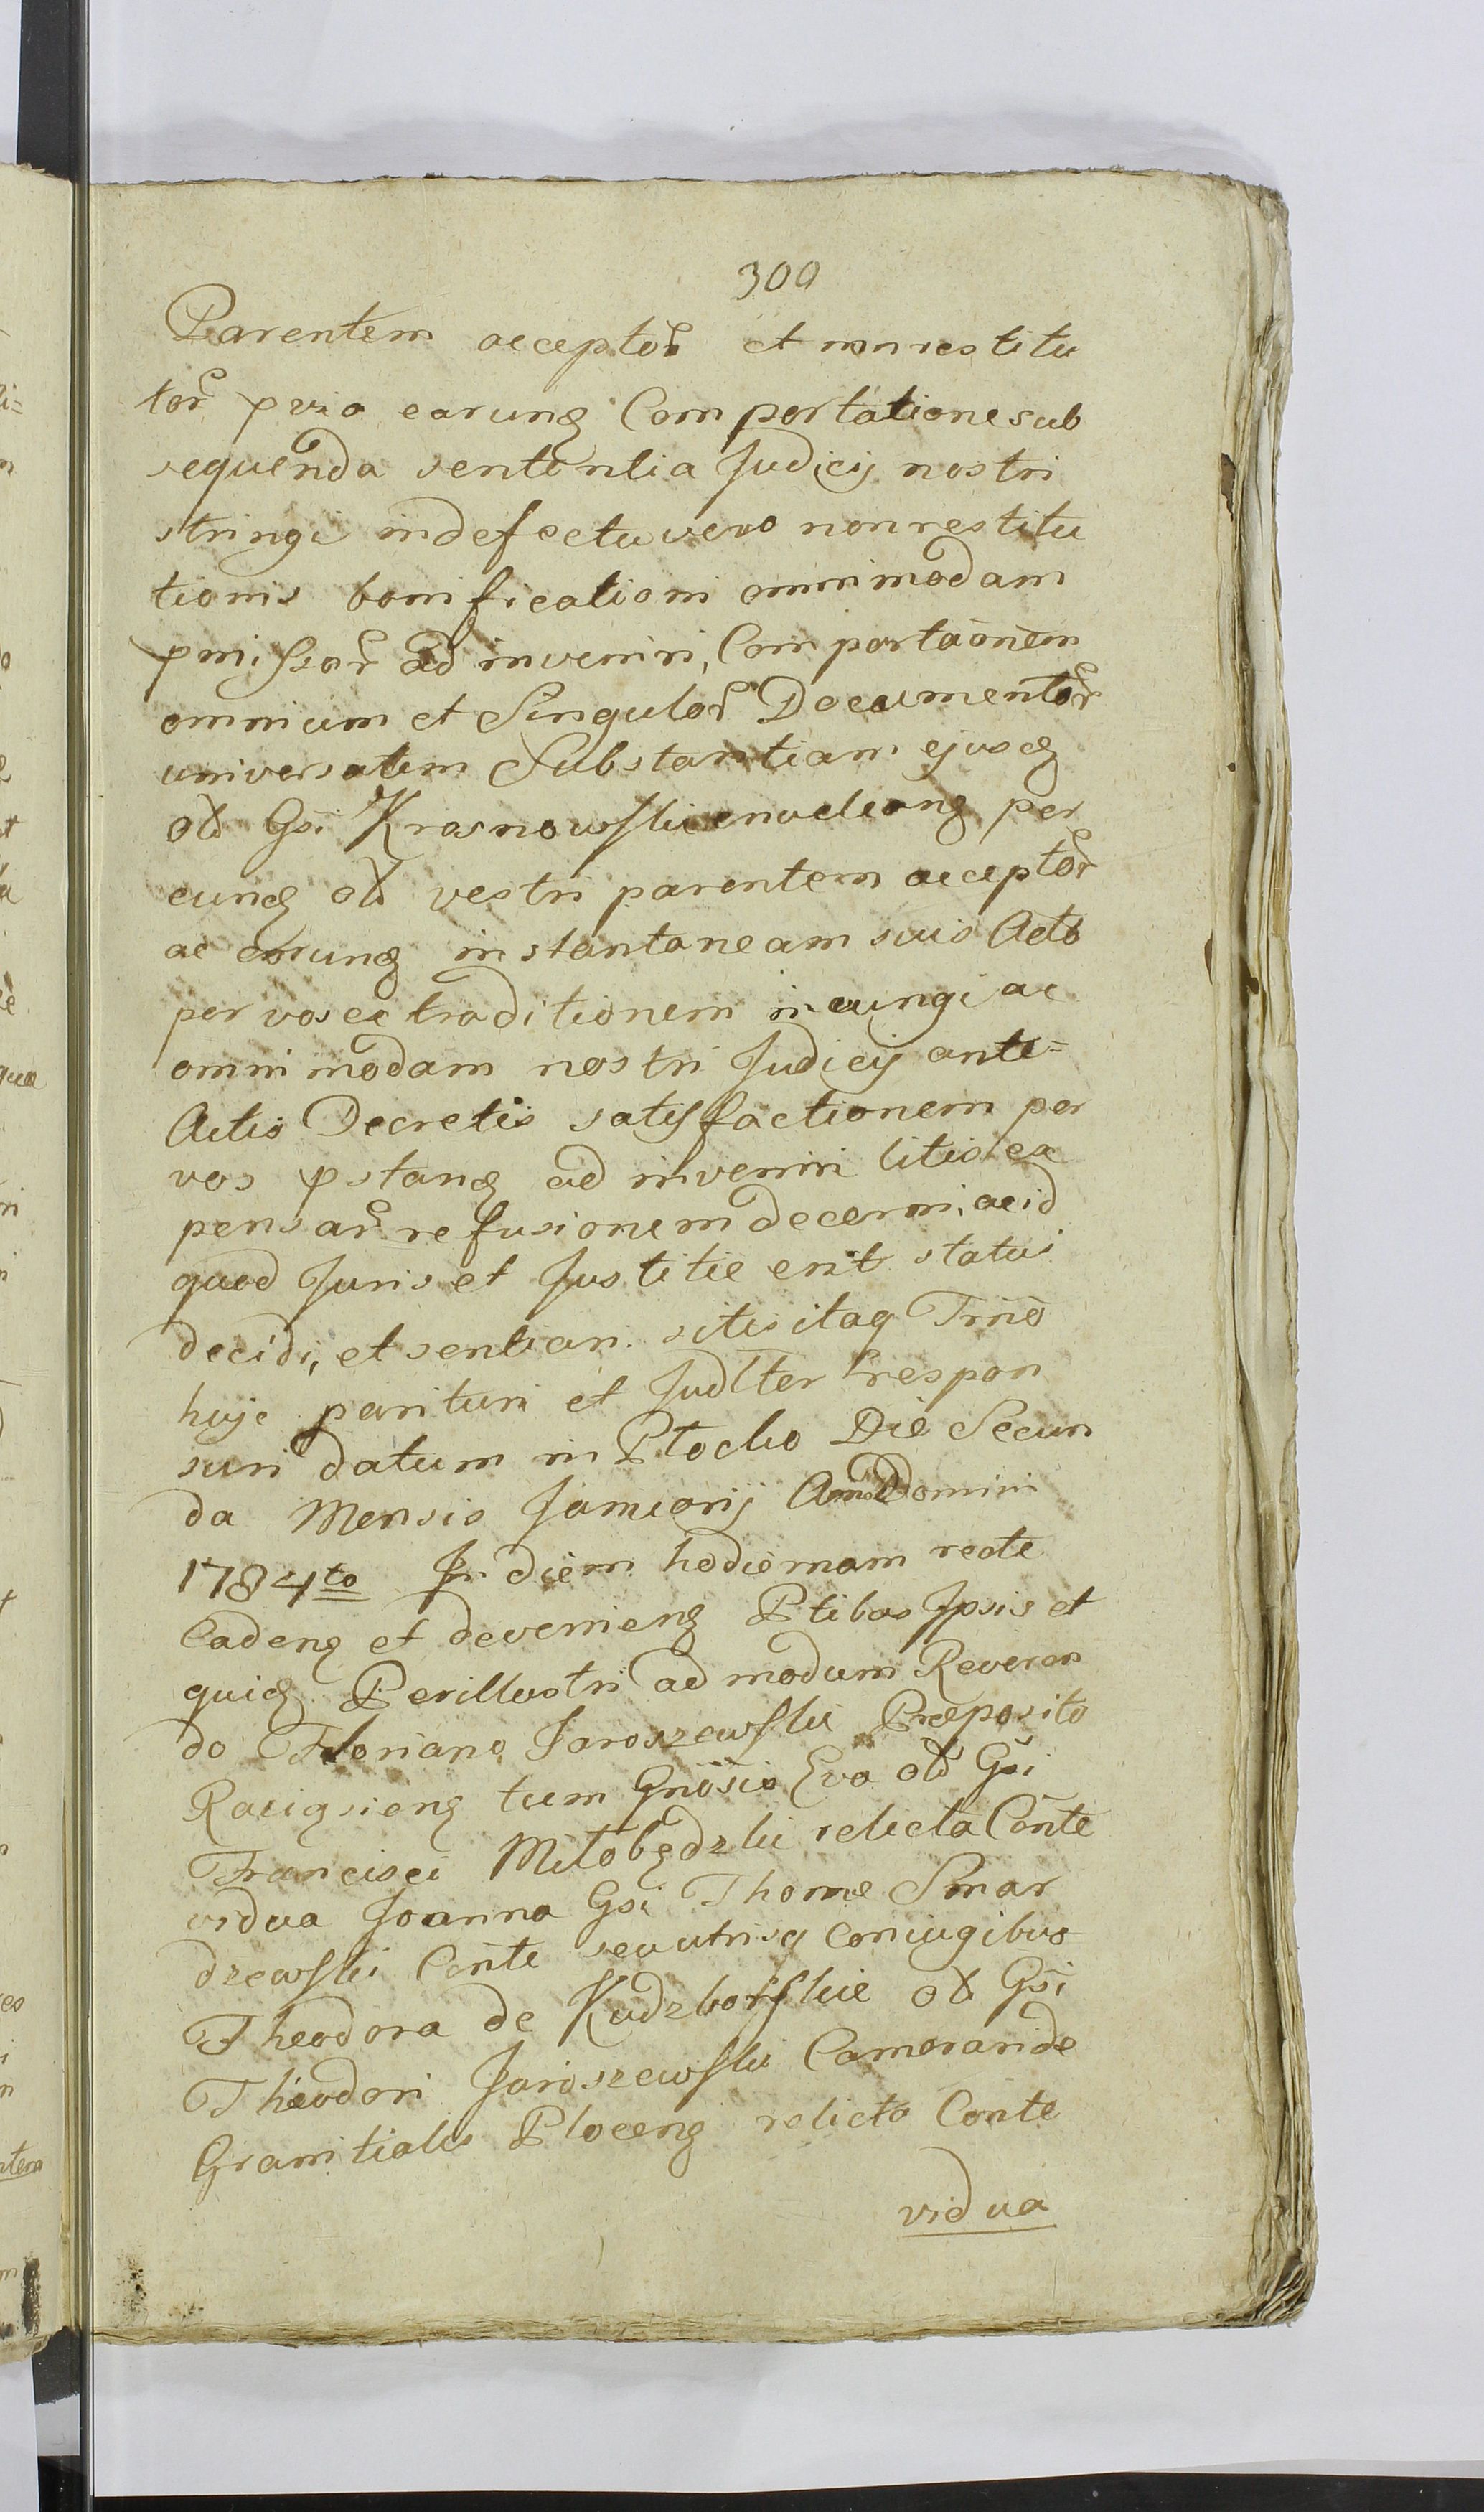 300
Parentem acceptor̃ et non restitu
tor̃ pvia earunđ Comportatione sub
sequenda sententia Judicij nostri
stringi in defectu vero non restitu
tionis bonificationi omnimodam
pmissor̃ ad inveniri, Comportãonem
omnium et Singulor̃ Documentor̃
universatem Substantiam ejusđ
ol̃i Gsi Krasnowski enucleanđ per
eunđ ol̃i vestri parentem acceptor̃
ac eorunđ instantaneam suis Actõ
per vos extraditionem injungi ac
omnimodam nostri Judicij ante=
Actis Decretis satisfactionem per
vos pstanđ ad inveniri litis ex
pensar̃ refusionem decerni, ac id
quod Juris et Justitie erit statui
decidi, et sentiari. sitis itaq Trnõ
hujc parituri et Judlter respon
suri datum in Płocko Die Secun
da Mensis Januarij Anno Domini
1784to In diem hodiernam recte
Cadenđ et devenienđ Ptibus Ipsis et
quiđ Perillustri ad modum Reveren
do Floriano Jaroszewski Præposito
Raciąsienđ tum Gnõsis Eva ol̃i Gsi
Francisci Miłobędzki relicta Cõnte
vidua Joanna Gsi Thome Smar
drzewski Cõnte seu utrisq coniugibus
Theodora de Kudzborskie ol̃i Gsi
Theodori Jaroszewski Cameraride
Granitialis Plocenđ relicta Conte
vidua